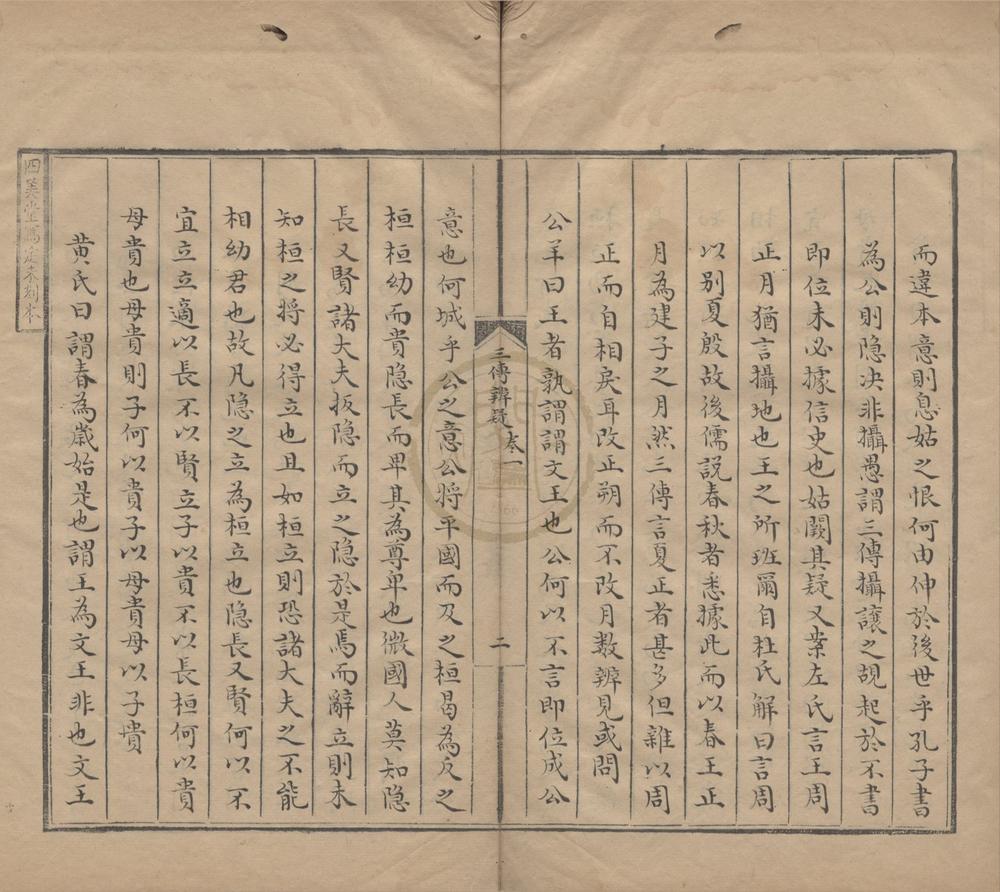 而違本意則息姑之恨何由伸於後世乎孔子書
為公則隐决非攝愚謂三傳攝譲之說起於不書
即位未必據信史也姑闕其疑又案左氏言王周
正月猶言攝地也王之所班爾自杜氏解曰言周
以别夏殷故後儒説春秋者悉據此而以春王正
月為建子之月然三傳言夏正者甚多但雜以周
正而自相戾耳改正朔而不改月数辨見或問
公羊曰王者孰謂謂文王也公何以不言即位成公
三傳辨疑 卷一
二
意也何城乎公之意公將平國而及之桓曷為反之
桓桓幼而貴隐長而卑其為尊卑也微國人莫知隐
長又賢諸大夫扳隐而立之隐於是焉而辭立則未
知桓之將必得立也且如桓立則恐諸大夫之不能
相幼君也故凡隐之立為桓立也隐長又賢何以不
宜立立適以長不以賢立子以貴不以長桓何以貴
母貴也母貴則子何以貴子以母貴母以子貴
黄氏曰謂春為歲始是也謂王為文王非也文王
四美堂寫定未刻本